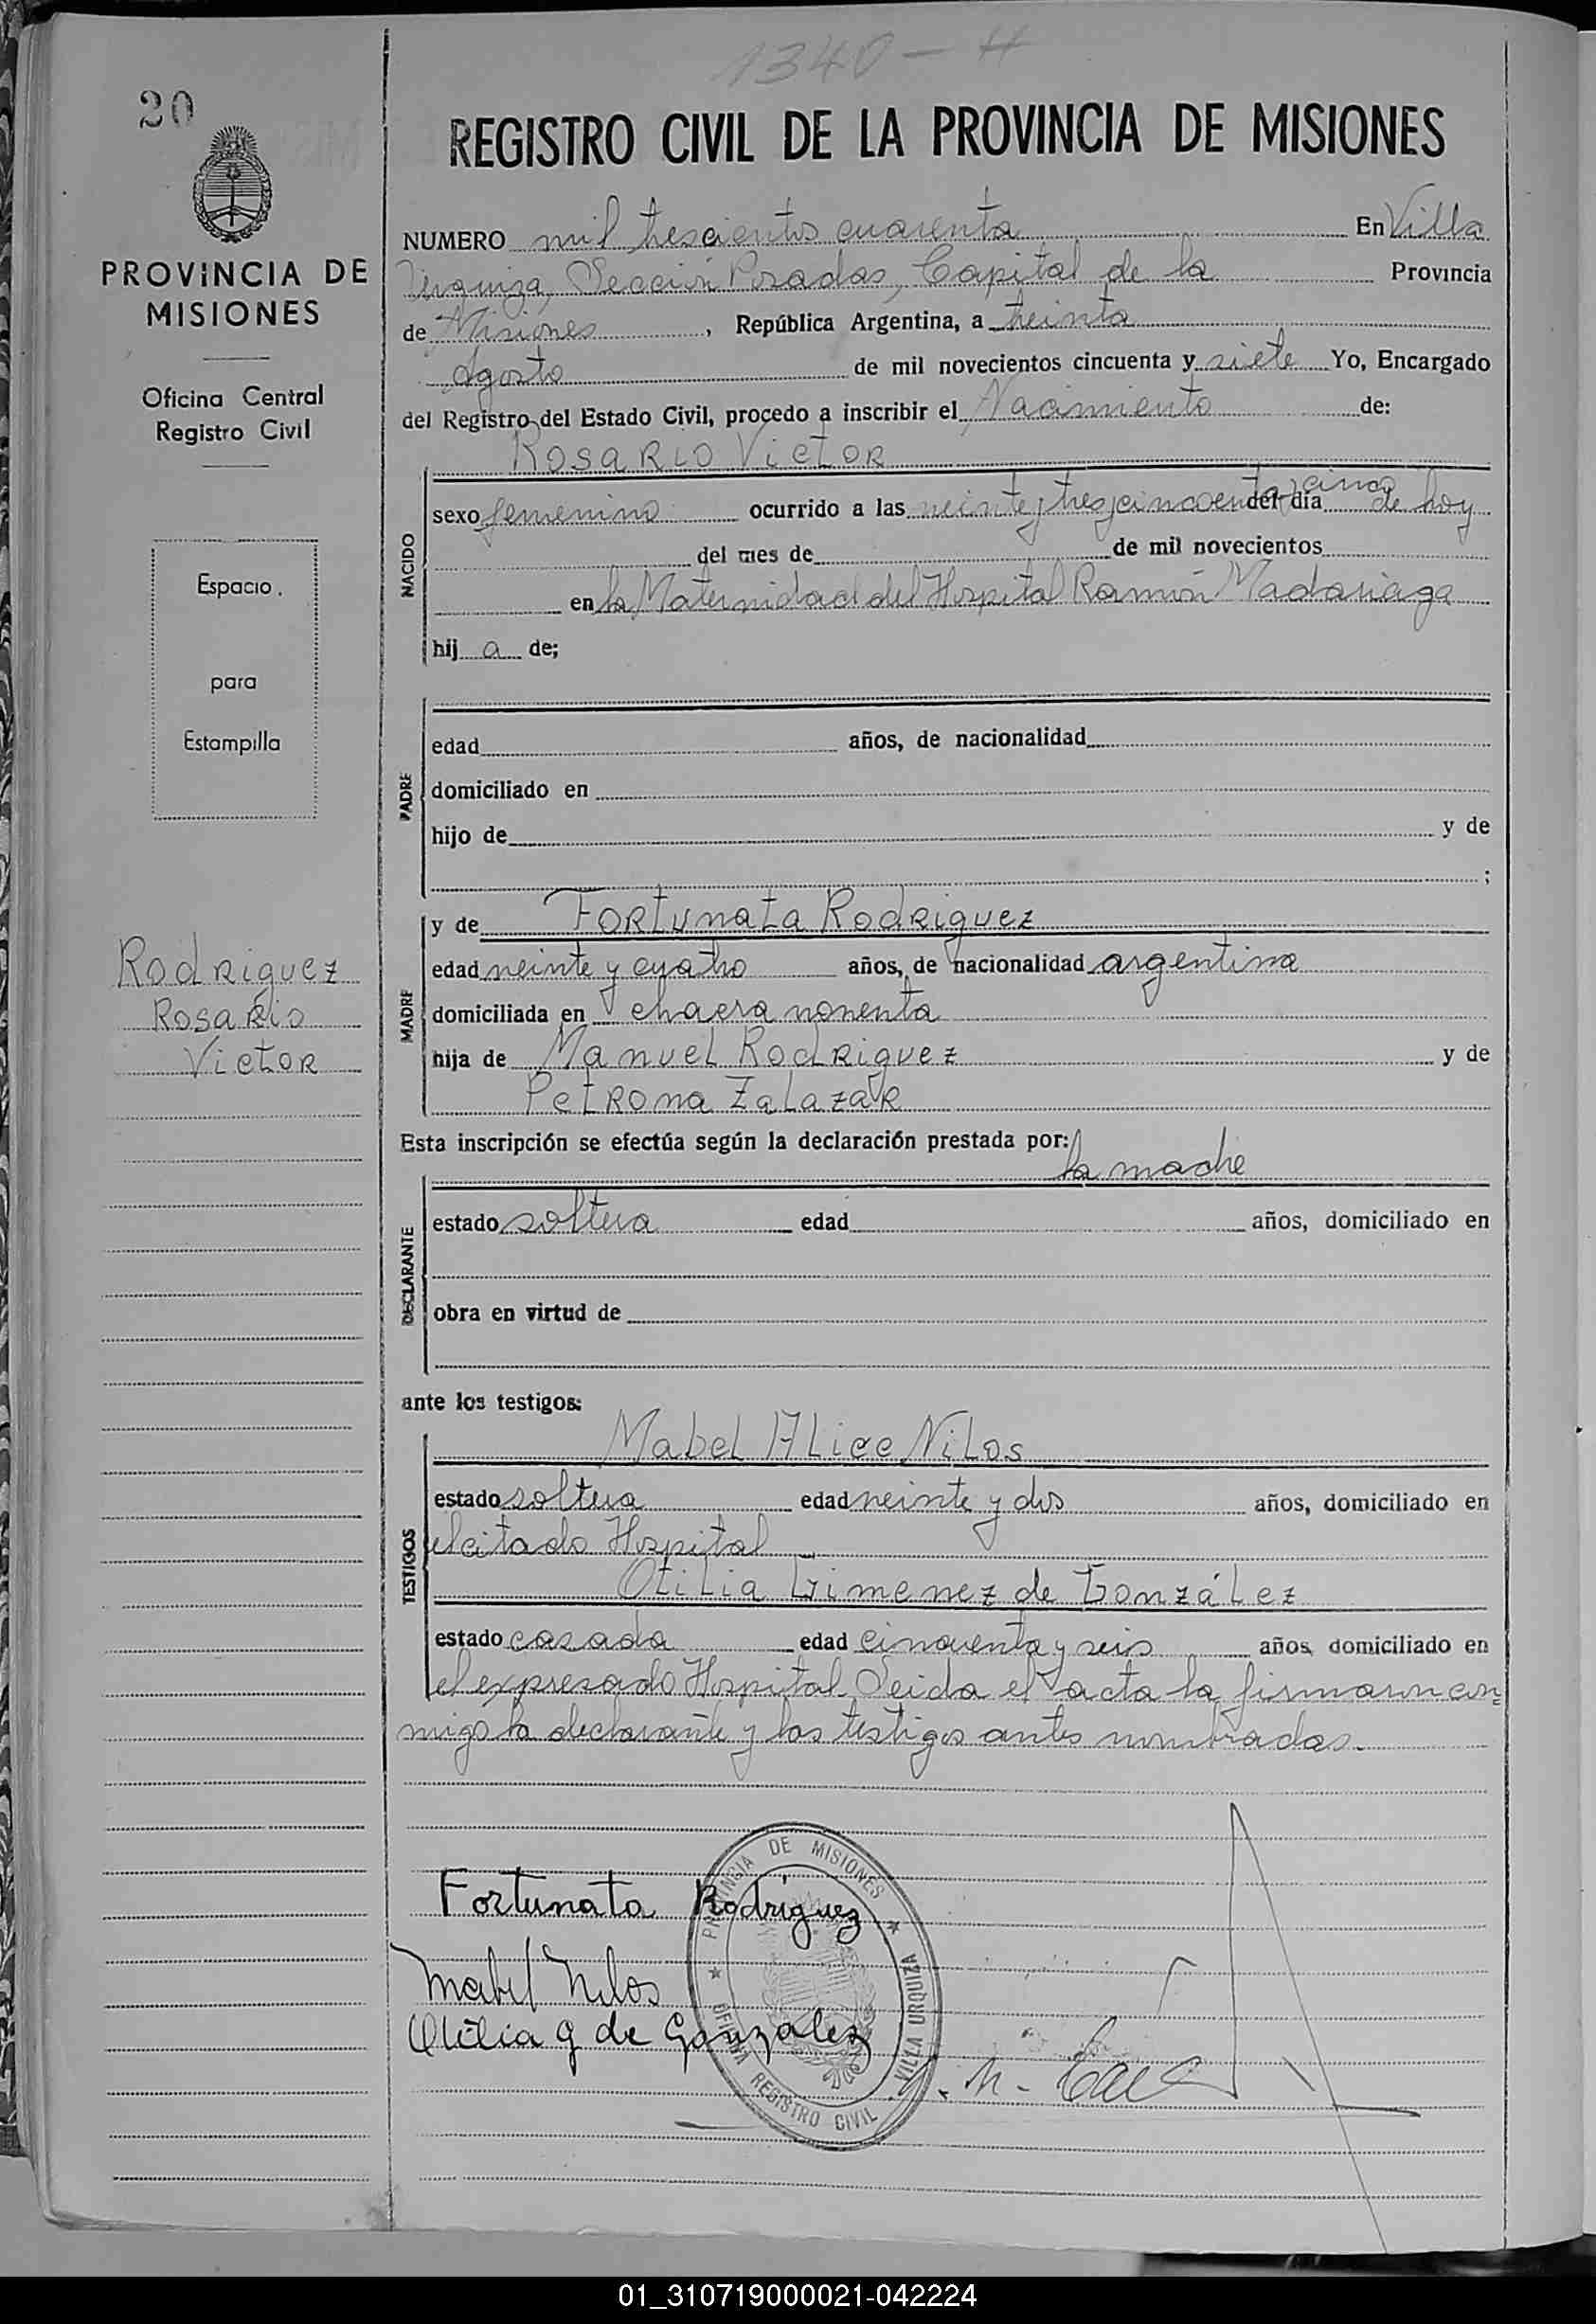 1340 - H
20
REGISTRO CIVIL DE LA PROVINCIA DE MISIONES
NUMERO mil trescientos cuarenta En Villa
Urquiza, Sección Posadas, Capital de la Provincia
PROVINCIA DE
MISIONES
de Misiones, República Argentina, a treinta
Agosto de mil novecientos cincuenta y siete Yo, Encargado
Oficina Central
Registro Civil
del Registro del Estado Civil, procedo a inscribir el Nacimiento de:
Rosario Victor
NACIDO
sexo femenino ocurrido a las veinte y tres y cincuenta y cinco del día de hoy
del mes de de mil novecientos
en la Maternidad del Hospital Ramón Madariaga
hij a de;
Espacio
para
Estampilla
PADRE
edad años, de nacionalidad
domiciliado en
hijo de y de
;
y de Fortunata Rodriguez
Rodriguez
Rosario
Victor
MADRE
edad veinte y cuatro años, de nacionalidad argentina
domiciliada en chacra noventa
hija de Manuel Rodriguez y de
Petrona Zalazar
Esta inscripción se efectúa según la declaración prestada por:
la madre
DECLARANTE
estado soltera edad años, domiciliado en
obra en virtud de
ante los testigos:
Mabel Alice Nilos
TESTIGOS
estado soltera edad veinte y dos años, domiciliado en
el citado Hospital
Otilia Gimenez de González
estado casada edad cincuenta y seis años, domiciliado en
el expresado Hospital Leida el acta la firmaron con=
migo la declarante y las testigos antes nombradas.
PROVINCIA DE MISIONES
OFICINA REGISTRO CIVIL
VILLA URQUIZA
Fortunata Rodriguez
Mabel Nilos
Otilia g de Gonzalez
01_310719000021-042224